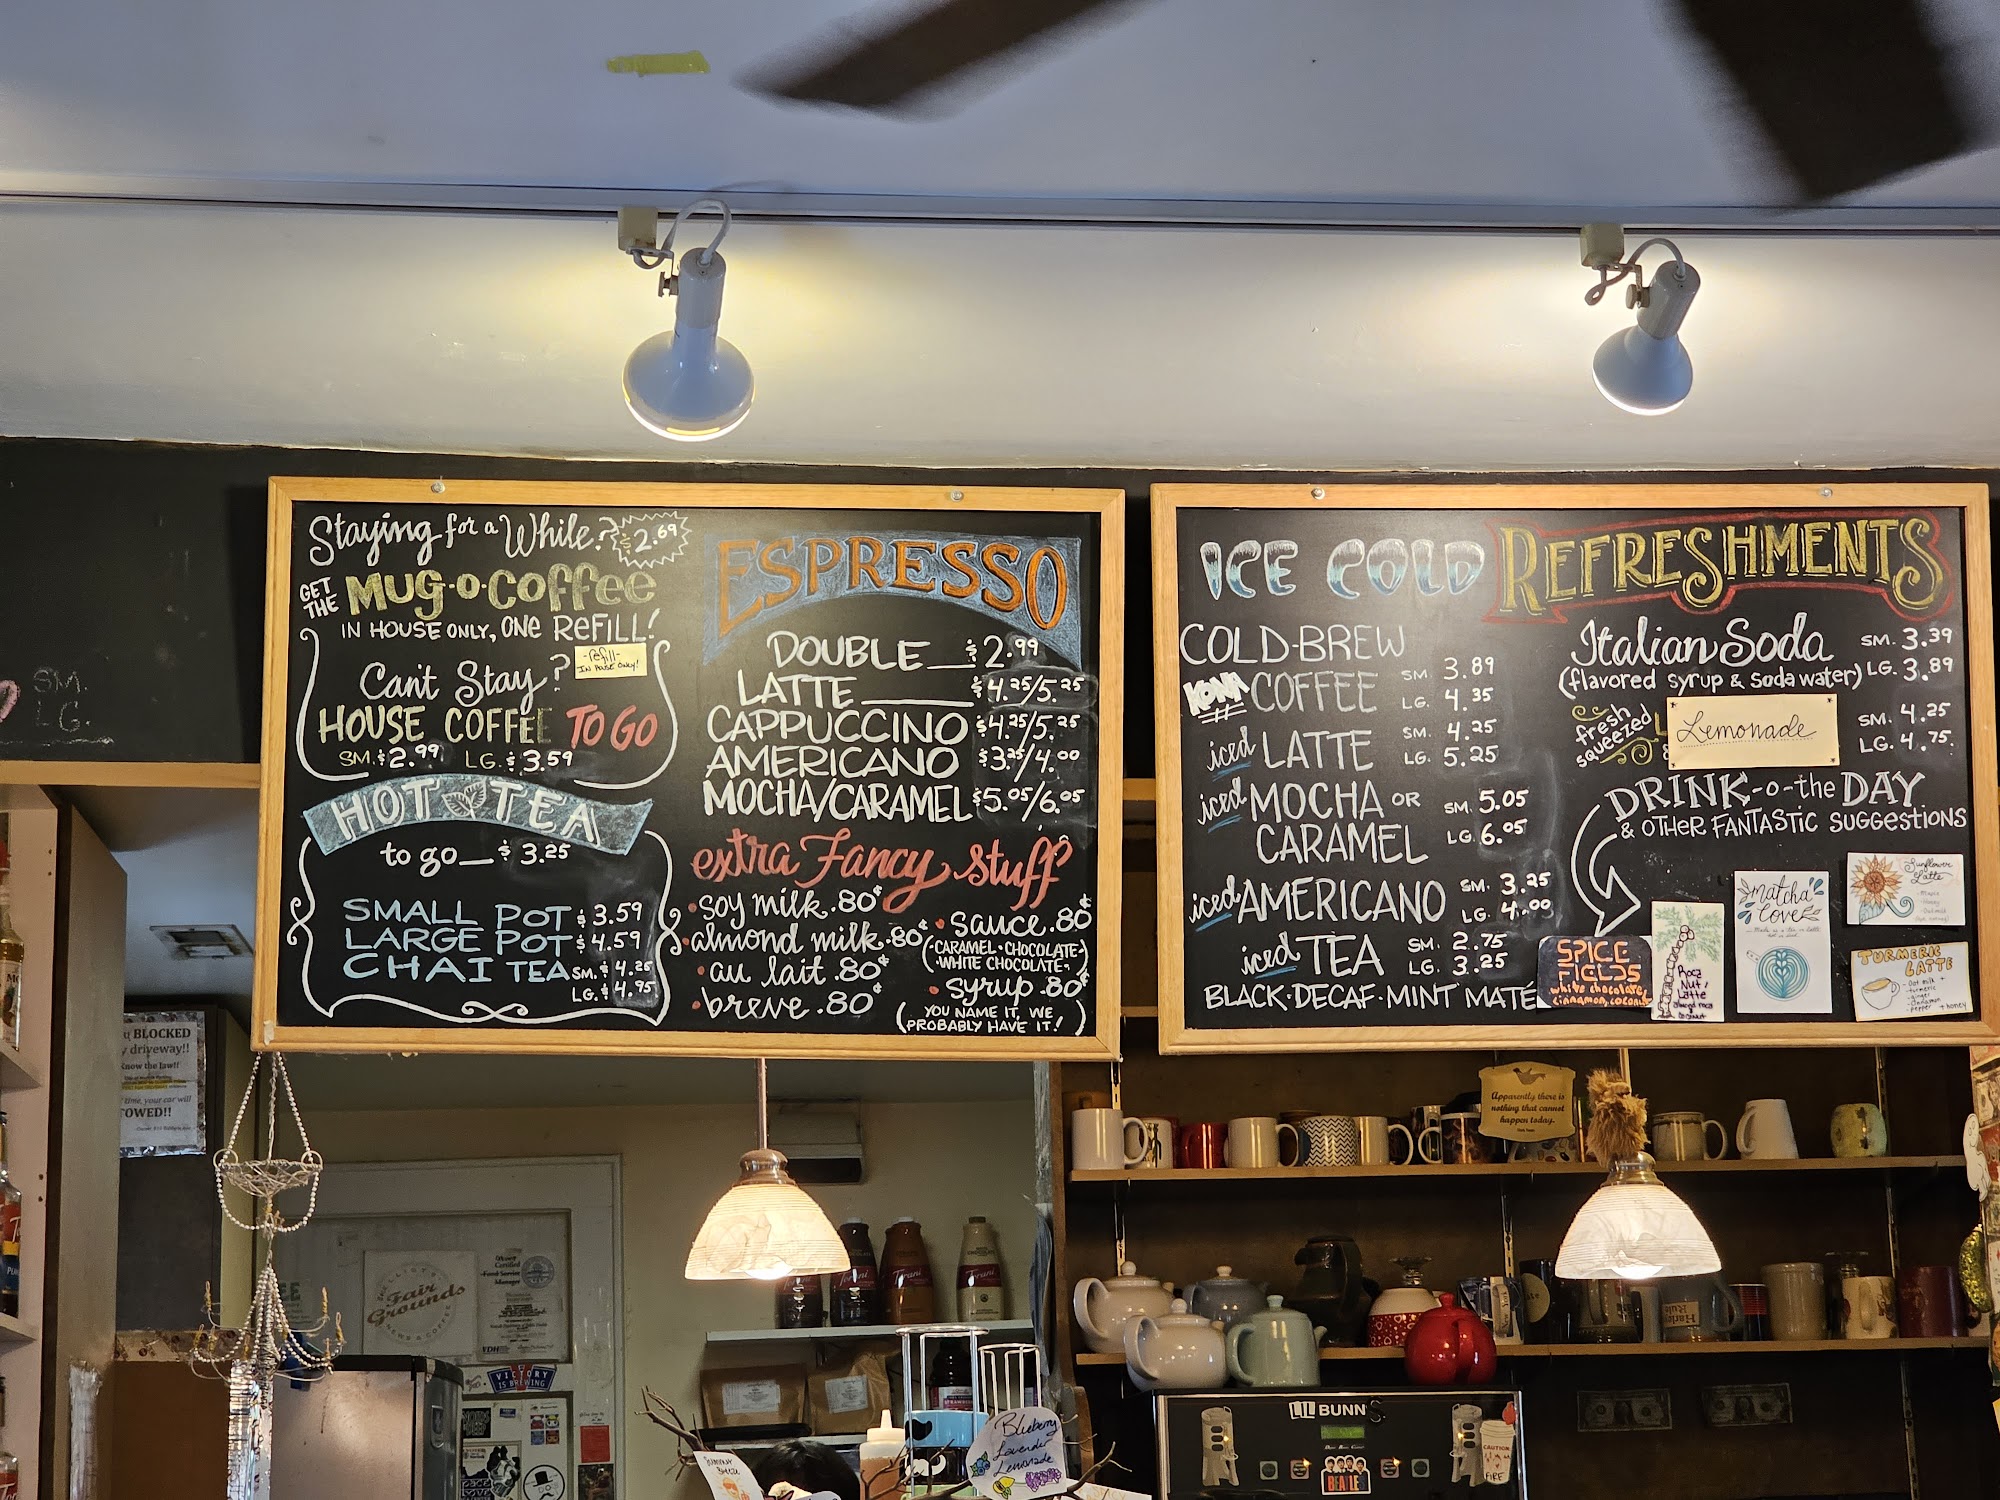 SM.
LG.
Staying for a While? $2.69
GET THE MUG-O-COFFEE
IN HOUSE ONLY, ONE REFILL!
-refill-
IN HOUSE ONLY!
Can't Stay?
HOUSE COFFEE TO GO
SM. $2.99 LG. $3.59
HOT TEA
to go $3.25
SMALL POT $3.59
LARGE POT $4.59
CHAI TEA SM. $4.25
LG. $4.95
ESPRESSO
DOUBLE $2.99
LATTE $4.25/5.25
CAPPUCCINO $4.25/5.25
AMERICANO $3.25/4.00
MOCHA/CARAMEL $5.05/6.05
extra Fancy stuff
• soy milk .80¢
• almond milk .80¢
• au lait .80¢
• breve .80¢
• sauce .80¢
(CARAMEL·CHOCOLATE·
·WHITE CHOCOLATE·)
• syrup .80¢
(YOU NAME IT, WE
PROBABLY HAVE IT!)
ICE COLD REFRESHMENTS
COLD-BREW
KONA COFFEE SM. 3.89
LG. 4.35
iced LATTE SM. 4.25
LG. 5.25
iced MOCHA OR
CARAMEL SM. 5.05
LG. 6.05
iced AMERICANO SM. 3.25
LG. 4.00
iced TEA SM. 2.75
LG. 3.25
BLACK·DECAF·MINT MATÉ
Italian Soda SM. 3.39
(flavored syrup & soda water) LG. 3.89
fresh squeezed
Lemonade
SM. 4.25
LG. 4.75
DRINK-o-the DAY
& OTHER FANTASTIC SUGGESTIONS
SPICE
FIELDS
white chocolate,
cinnamon, coconut
Roca
Nut
Latte
almond roca
coconut
Matcha
Love
Sunflower
Latte
- Maple
- Honey
- Oat milk
TURMERIC
LATTE
- Oat milk
- turmeric
- ginger
- cinnamon
- pepper + honey
BLOCKED
driveway!!
Know the law!!
time, your car will
TOWED!!
Apparently there is
nothing that cannot
happen today.
Fair
Grounds
Certified
Food Service
Manager
VDH
VICTORY
IS BREWING
Torani
Torani
Torani
Blueberry
Lavender
Lemonade
Summer
Breeze
LIL BUNN S.
BEATLES
CAUTION
FIRE